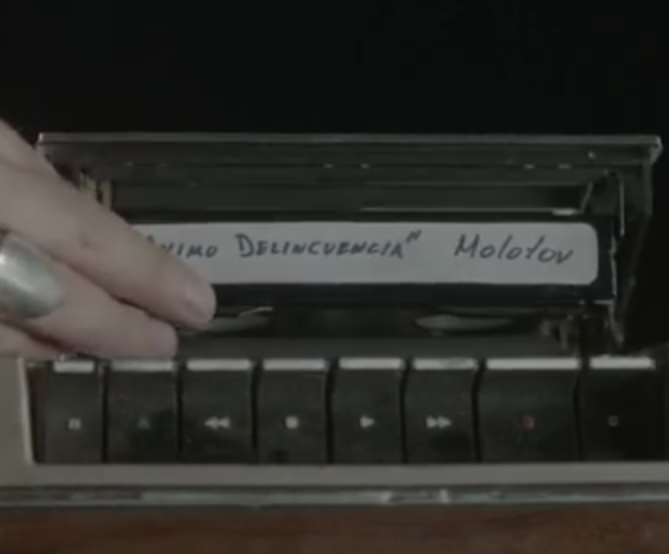 DELINCUENCIA" Molotov